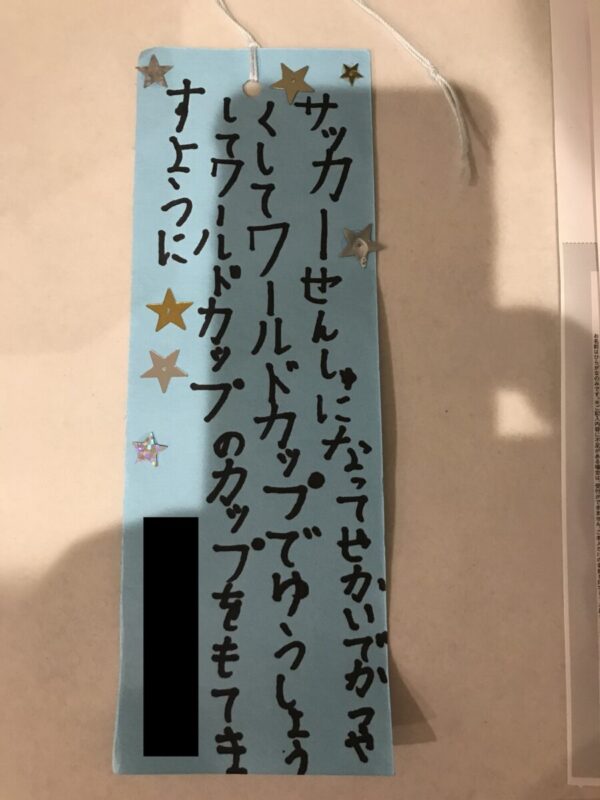 サッカーせんしゅになってせかいでかつや
くしてワールドカップでゆうしょう
してワールドカップのカップをもてま
すように